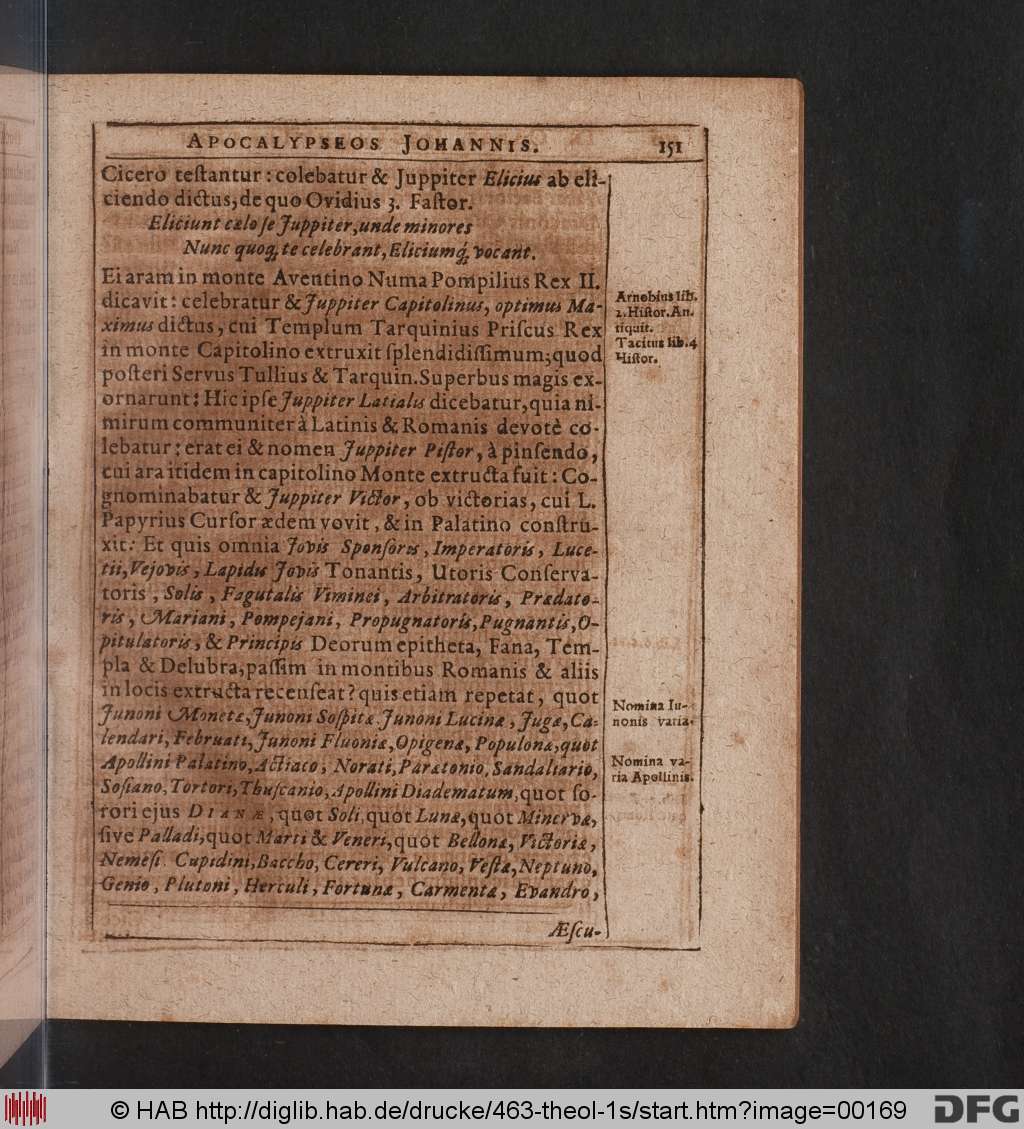 APOCALYPSEOS JOHANNIS. 151
Cicero teſtantur: colebatur & Juppiter Elicius ab eli-
ciendo dictus, de quo Ovidius 3. Faſtor.
Eliciunt cælo ſe Juppiter, unde minores
Nunc quoq; te celebrant, Eliciumq́; vocant.
Ei aram in monte Aventino Numa Pompilius Rex II.
dicavit: celebratur & Juppiter Capitolinus, optimus Ma-
ximus dictus, cui Templum Tarquinius Priſcus Rex
in monte Capitolino extruxit ſplendidiſſimum; quod
poſteri Servus Tullius & Tarquin. Superbus magis ex-
ornarunt: Hic ipſe Juppiter Latialis dicebatur, quia ni-
mirum communiter à Latinis & Romanis devotè co-
lebatur; erat ei & nomen Juppiter Piſtor, à pinſendo,
cui ara itidem in capitolino Monte extructa fuit: Co-
gnominabatur & Juppiter Victor, ob victorias, cui L.
Papyrius Curſor ædem vovit, & in Palatino conſtru-
xit: Et quis omnia Jovis Sponſoris, Imperatoris, Luce-
tii, Vejovis, Lapidis Jovis Tonantis, Utoris Conſerva-
toris, Solis, Fagutalis Viminei, Arbitratoris, Prædato-
ris, Mariani, Pompejani, Propugnatoris, Pugnantis, O-
pitulatoris, & Principis Deorum epitheta, Fana, Tem-
pla & Delubra, paſſim in montibus Romanis & aliis
in locis extructa recenſeat? quis etiam repetat, quot
Junoni Monetæ, Junoni Soſpitæ. Junoni Lucinæ, Jugæ, Ca-
lendari, Februati, Junoni Fluoniæ, Opigenæ, Populonæ, quot
Apollini Palatino, Actiaco, Norati, Parætonio, Sandaliario,
Soſiano, Tortori, Thuſcanio, Apollini Diadematum, quot ſo-
rori ejus DIANÆ, quot Soli, quot Lunæ, quot Minervæ,
ſive Palladi, quot Marti & Veneri, quot Bellonæ, Victoriæ,
Nemeſi. Cupidini, Baccho, Cereri, Vulcano, Veſtæ, Neptuno,
Genio, Plutoni, Herculi, Fortunæ, Carmentæ, Evandro,
Æſcu-
Arnobius lib.
2. Hiſtor. An-
tiquit.
Tacitus lib. 4
Hiſtor.
Nomina Iu-
nonis varia.
Nomina va-
ria Apollinis.
© HAB http://diglib.hab.de/drucke/463-theol-1s/start.htm?image=00169
DFG